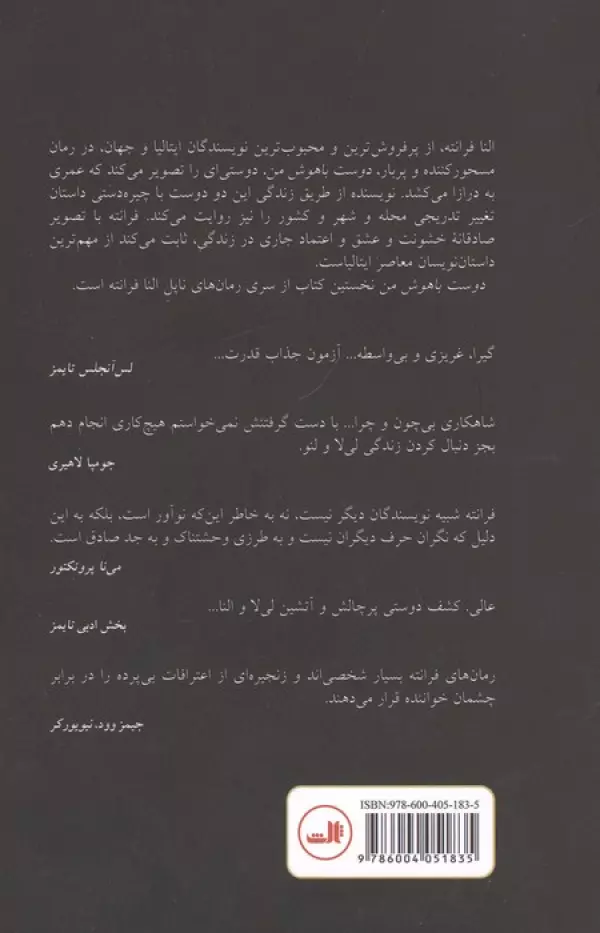 النا فرانته، از پرفروش‌ترین و محبوب‌ترین نویسندگان ایتالیا و جهان، در رمان
مسحورکننده و پربار، دوست باهوش من، دوستی‌ای را تصویر می‌کند که عمری
به درازا می‌کشد. نویسنده از طریق زندگی این دو دوست با چیره‌دستی داستان
تغییر تدریجی محله و شهر و کشور را نیز روایت می‌کند. فرانته با تصویر
صادقانهٔ خشونت و عشق و اعتماد جاری در زندگی، ثابت می‌کند از مهم‌ترین
داستان‌نویسان معاصر ایتالیاست.
دوست باهوش من نخستین کتاب از سری رمان‌های ناپل النا فرانته است.
گیرا، غریزی و بی‌واسطه... آزمون جذاب قدرت...
لس‌آنجلس تایمز
شاهکاری بی‌چون و چرا... با دست گرفتنش نمی‌خواستم هیچ‌کاری انجام دهم
بجز دنبال کردن زندگی لی‌لا و لنو.
جومپا لاهیری
فرانته شبیه نویسندگان دیگر نیست، نه به خاطر این‌که نوآور است، بلکه به این
دلیل که نگران حرف دیگران نیست و به طرزی وحشتناک و به جد صادق است.
می‌نا پرونکتور
عالی. کشف دوستی پرچالش و آتشین لی‌لا و النا...
بخش ادبی تایمز
رمان‌های فرانته بسیار شخصی‌اند و زنجیره‌ای از اعترافات بی‌پرده را در برابر
چشمان خواننده قرار می‌دهند.
جیمز وود، نیویورکر
ISBN:978-600-405-183-5
ثالث
9 786004 051835